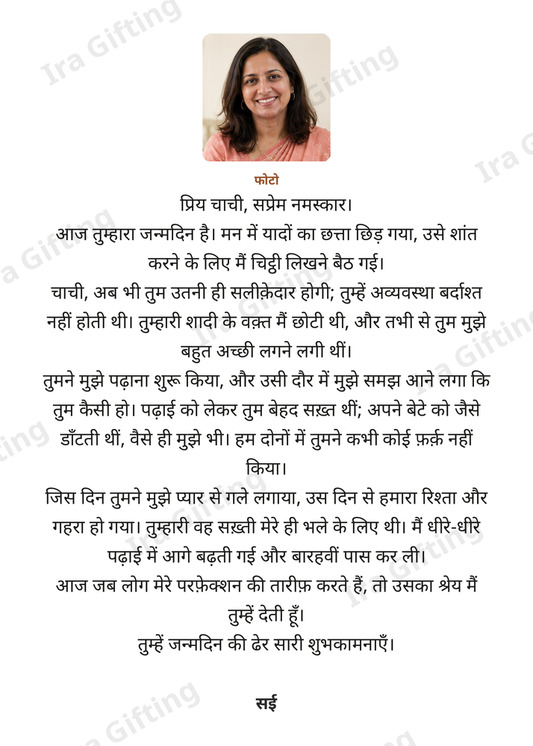 फोटो
प्रिय चाची, सप्रेम नमस्कार।
आज तुम्हारा जन्मदिन है। मन में यादों का छत्ता छिड़ गया, उसे शांत
करने के लिए मैं चिट्ठी लिखने बैठ गई।
चाची, अब भी तुम उतनी ही सलीक़ेदार होगी; तुम्हें अव्यवस्था बर्दाश्त
नहीं होती थी। तुम्हारी शादी के वक़्त मैं छोटी थी, और तभी से तुम मुझे
बहुत अच्छी लगने लगी थीं।
तुमने मुझे पढ़ाना शुरू किया, और उसी दौर में मुझे समझ आने लगा कि
तुम कैसी हो। पढ़ाई को लेकर तुम बेहद सख़्त थीं; अपने बेटे को जैसे
डाँटती थीं, वैसे ही मुझे भी। हम दोनों में तुमने कभी कोई फ़र्क़ नहीं
किया।
जिस दिन तुमने मुझे प्यार से गले लगाया, उस दिन से हमारा रिश्ता और
गहरा हो गया। तुम्हारी वह सख़्ती मेरे ही भले के लिए थी। मैं धीरे-धीरे
पढ़ाई में आगे बढ़ती गई और बारहवीं पास कर ली।
आज जब लोग मेरे परफ़ेक्शन की तारीफ़ करते हैं, तो उसका श्रेय मैं
तुम्हें देती हूँ।
तुम्हें जन्मदिन की ढेर सारी शुभकामनाएँ।
सई
Ira Gifting
Ira Gifting
Ira G
a Gifting
Ira Gifting
Ira Gifting
ting
Ira Gifting
Ira Gifting
a Gifting